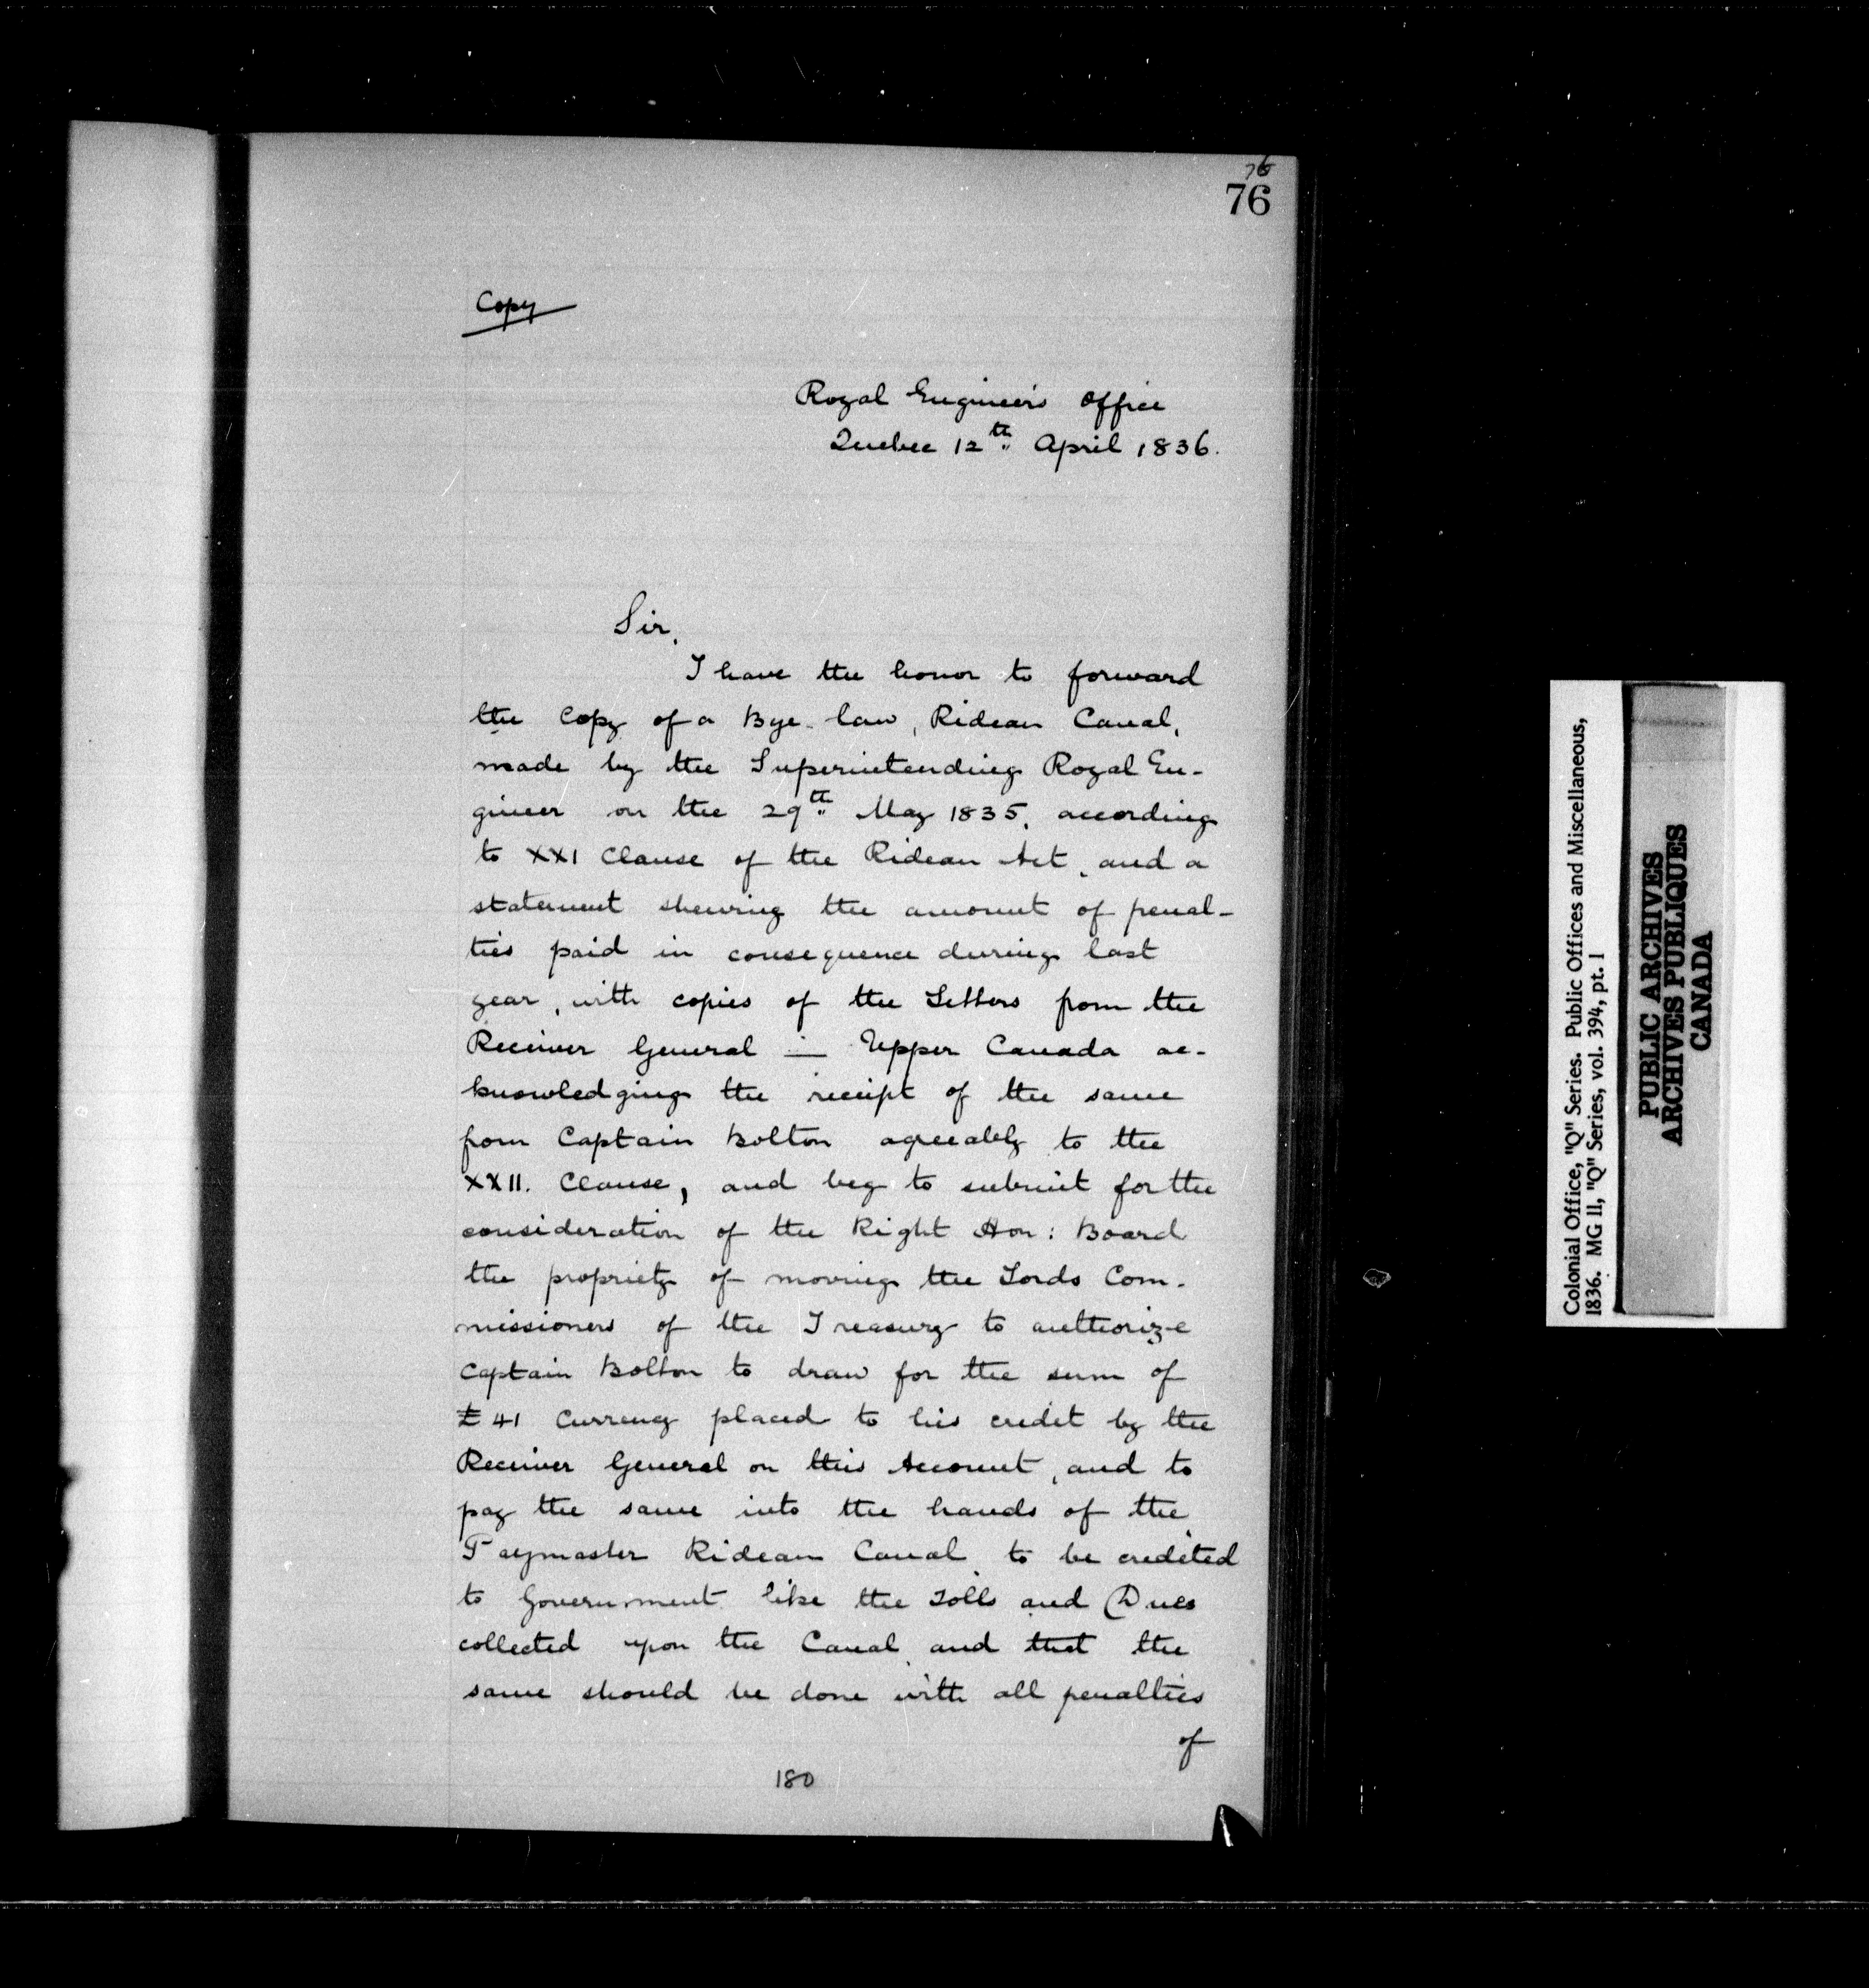 76
76
Copy
Royal Engineers Office
Quebec 12th April 1836.
Sir,
I have the honor to forward
the Copy of a Bye-law, Rideau Canal,
made by the Superintending Royal En-
gineer on the 29th May 1835, according
to XXI Clause of the Rideau Act, and a
statement shewing the amount of penal-
ties paid in consequence during last
year, with copies of the Letters from the
Receiver General — Upper Canada ac-
knowledging the receipt of the same
from Captain Bolton agreeably to the
XXII. Clause, and beg to submit for the
consideration of the Right Hon: Board
the propriety of moving the Lords Com-
missioners of the Treasury to authorize
Captain Bolton to draw for the sum of
£41 Currency placed to his credit by the
Receiver General on this Account, and to
pay the same into the hands of the
Paymaster Rideau Canal, to be credited
to Government like the Tolls and Dues
collected upon the Canal, and that the
same should be done with all penalties
of
180
Colonial Office, "Q" Series. Public Offices and Miscellaneous,
1836. MG 11, "Q" Series, vol. 394, pt. 1
PUBLIC ARCHIVES
ARCHIVES PUBLIQUES
CANADA